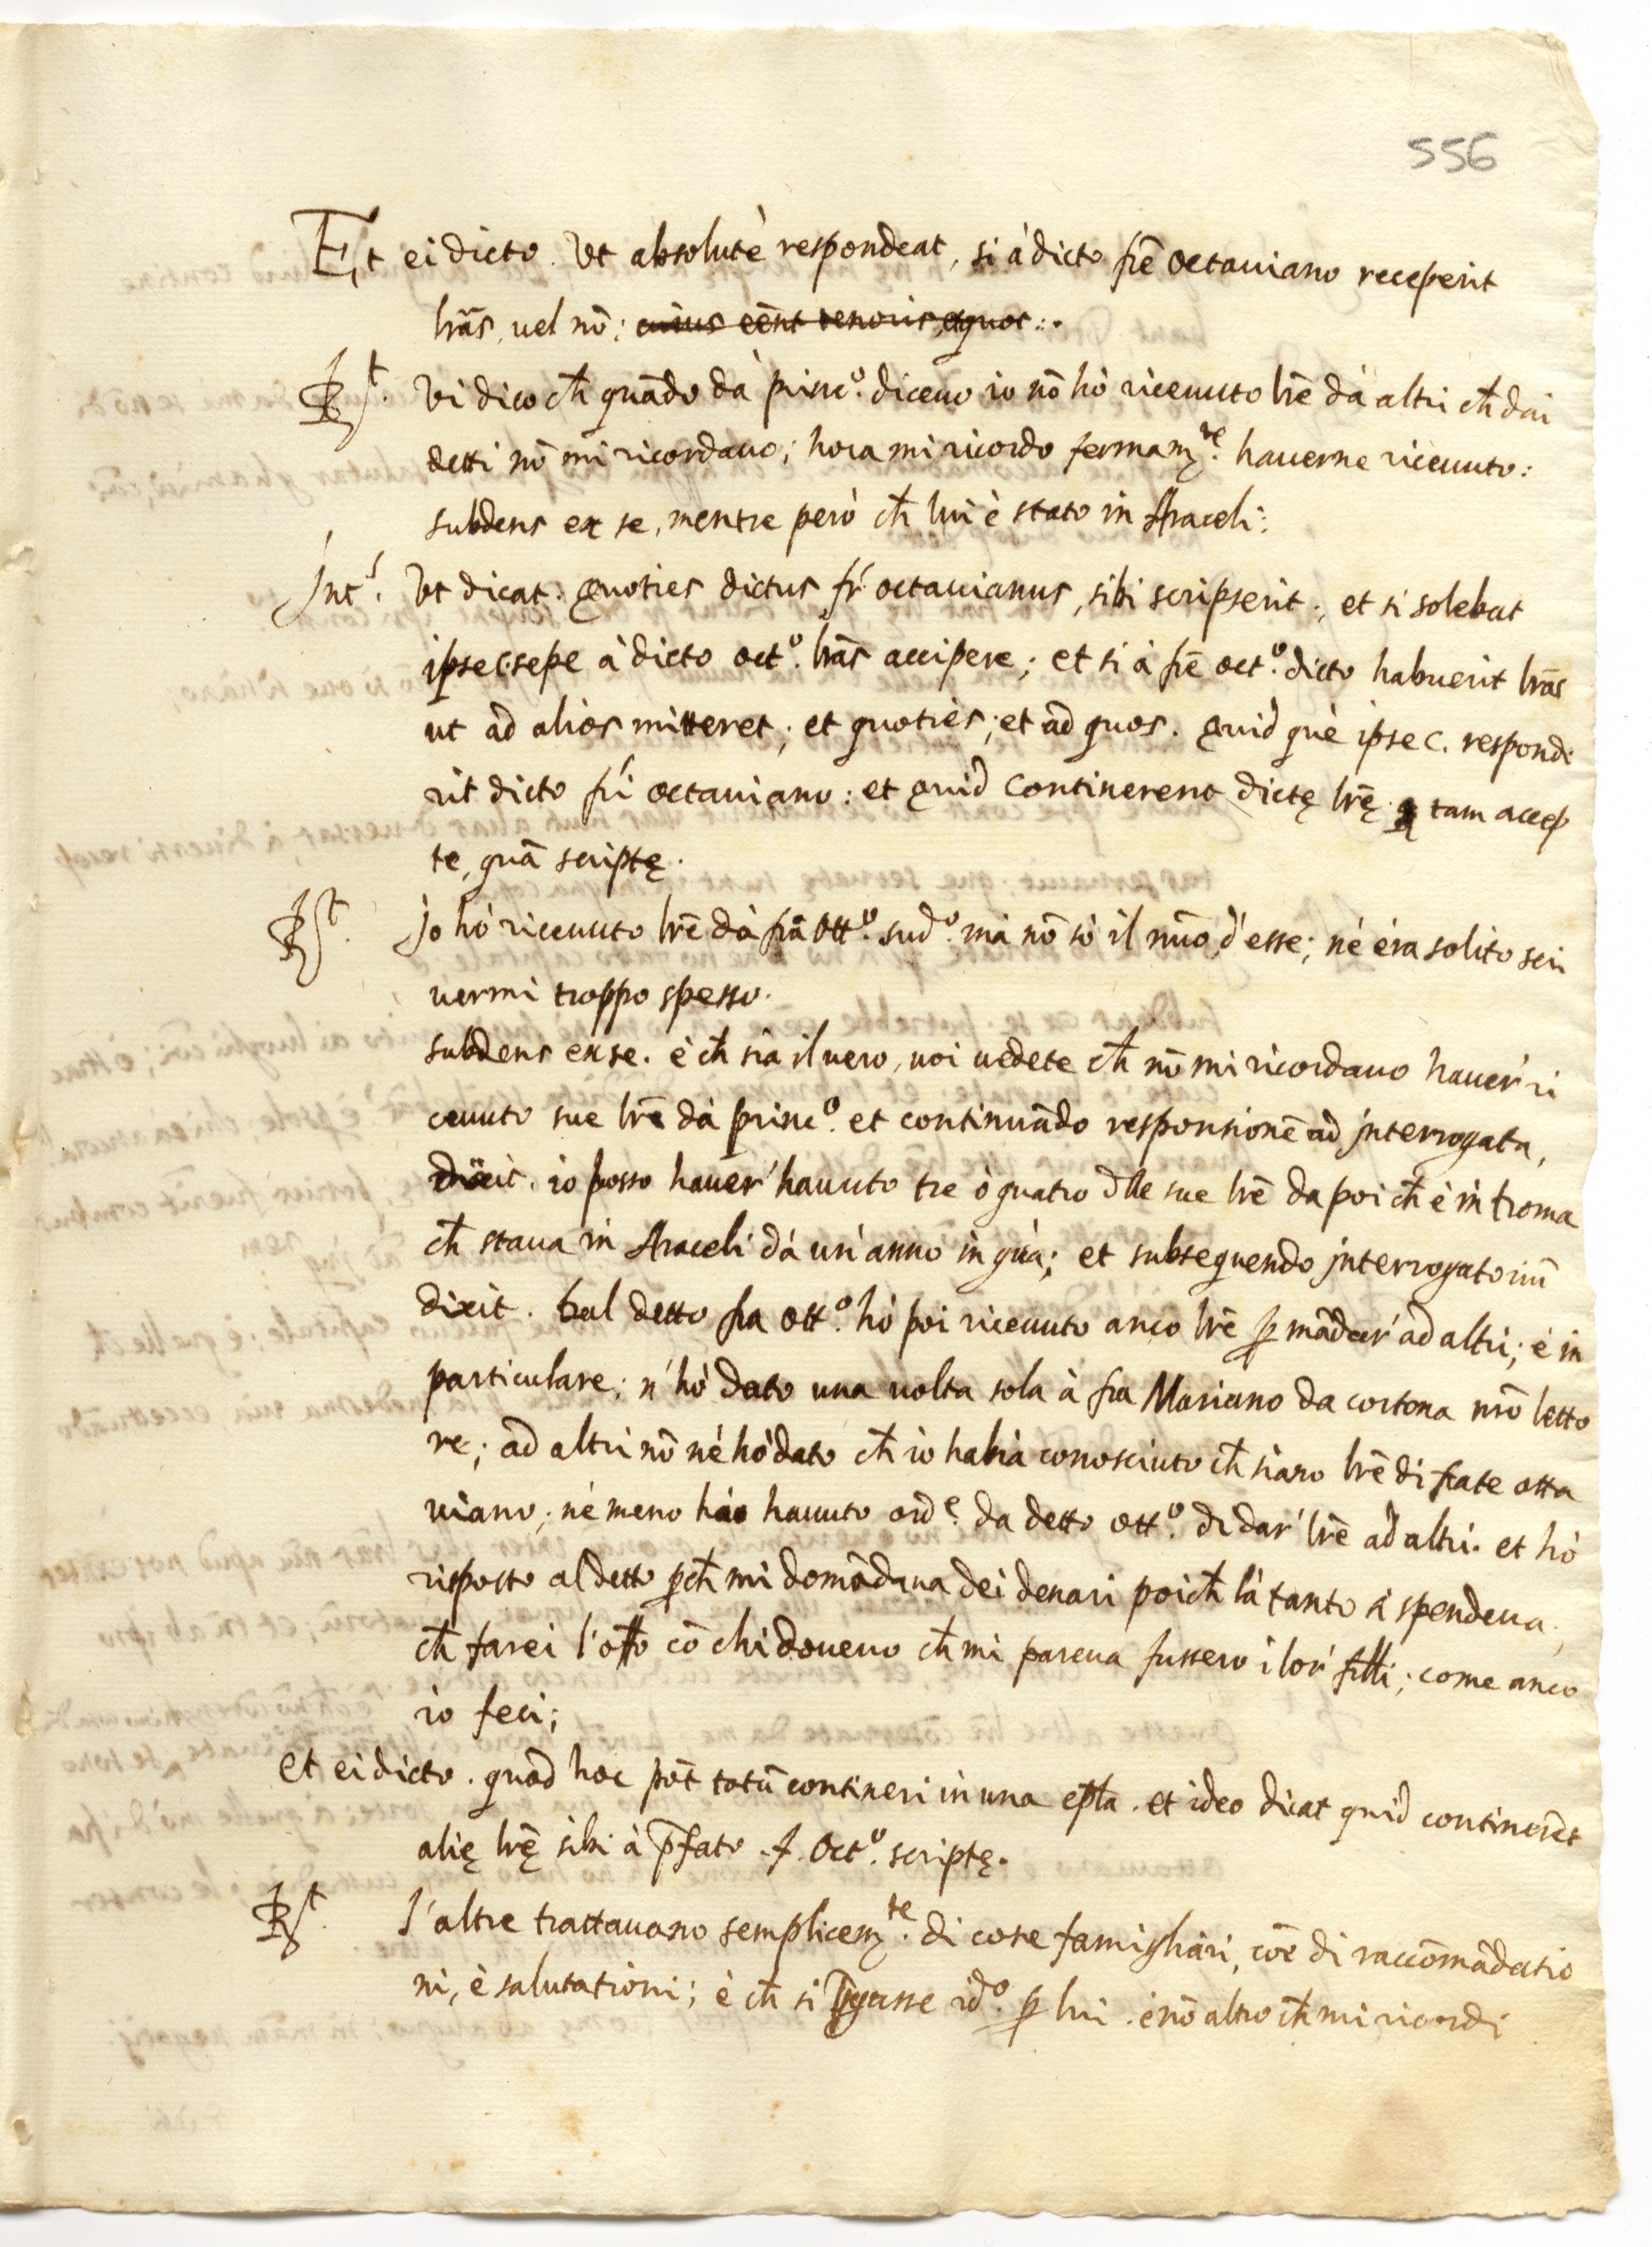 556
Et ei dicto. Vt absolutè respondeat, si à dicto frē Octauiano receperit
lrās, uel nō; cuius eēnt tenoris, et quot:.
Rt. Vi dico ch̄ quādo dà princ.o diceuo io nō hò riceuuto lrē dà altri ch̄ dai
detti nō mi ricordauo; hora mi ricordo fermam.te hauerne riceuuto:
subdens ex se, mentre però ch̄ lui è stato in Araceli:
Int.s Vt dicat. Quoties dictus fr̄ octauianus, sibi scripserit; et si solebat
ipse C. sepe à dicto oct.o lrās accipere; et si à frē oct.o dicto habuerit lrās
ut ad alios mitteret; et quotiès; et ad quos. Quid què ipse C. respond
rit dicto fri octauiano: et quid continerent dictę lrę tam accep
te, quā scriptę.
Rt. Io hò riceuuto lrē dà frà Ott.o sud.o mà nō sò il nūo d'esse; nè éra solito scri
uermi troppo spesso.
subdens ex se. è ch̄ sia il uero, uoi uedete ch̄ nō mi ricordauo hauer' ri
ceuuto sue lrē dà princ.o et continuādo responsionē ad interrogata,
dixit. io posso hauer' hauuto tre ò quatro dlle sue lrē da poi ch̄ è in Roma
ch̄ staua in Araceli dà un' anno in quà; et subsequendo interrogatoriū
dixit. Dal detto fra Ott.o hò poi riceuuto anco lrē p̱ mādar' ad altri; è in
particulare; n'hò dato una uolta sola à fra Mariano da cortona nr̄o letto
re; ad altri nō né hò dato ch̄ io habia conosciuto ch̄ siano lrē di frate otta
uiano; nè meno hò hauuto ord.e da detto ott.o di dar' lrē ad altri. et hò
risposto al detto p̱ch̄ mi domādaua dei denari poich̄ là tanto si spendeua;
ch̄ farei l'offo cō chi doueuo ch̄ mi pareua fussero i lor' fflli; come anco
io feci;
Et ei dicto. quod hoc pōt totū contineri in una epla. et ideo dicat quid continerēt
alię lrę sibi à p̄fato .f. Oct.o scriptę.
Rt. l'altre trattauano semplicem.te di cose famigliari, coē di raccōmādatio
ni, è salutationi; è ch̄ si p̱gasse id.o p̱ lui. è nō altro ch̄ mi ricordi